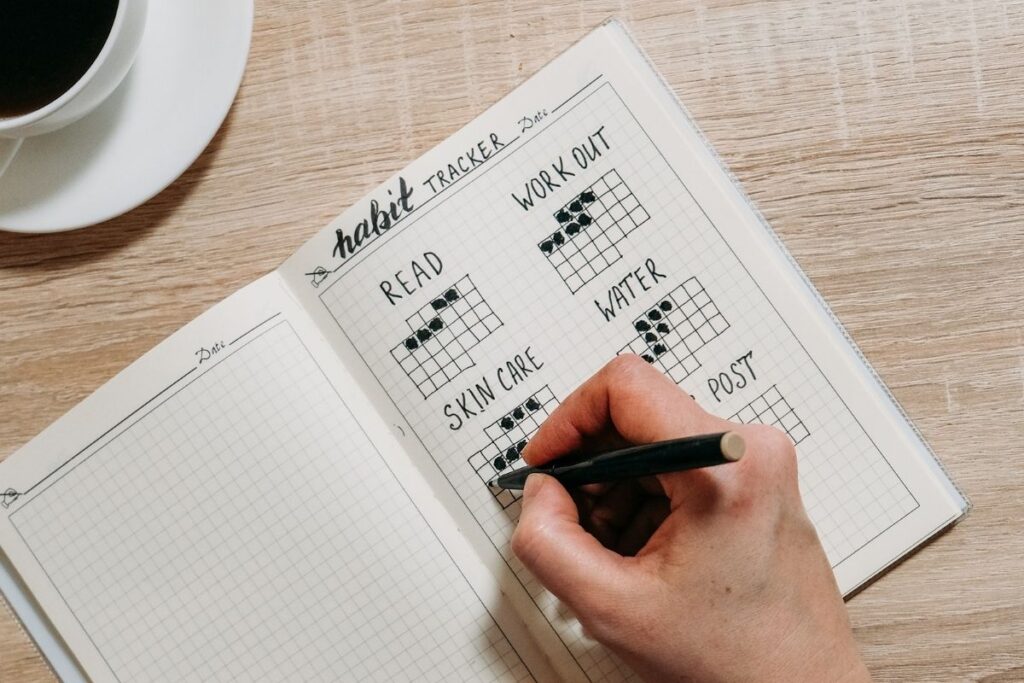 habit TRACKER Date
READ
WORK OUT
SKIN CARE
WATER
POST
Date